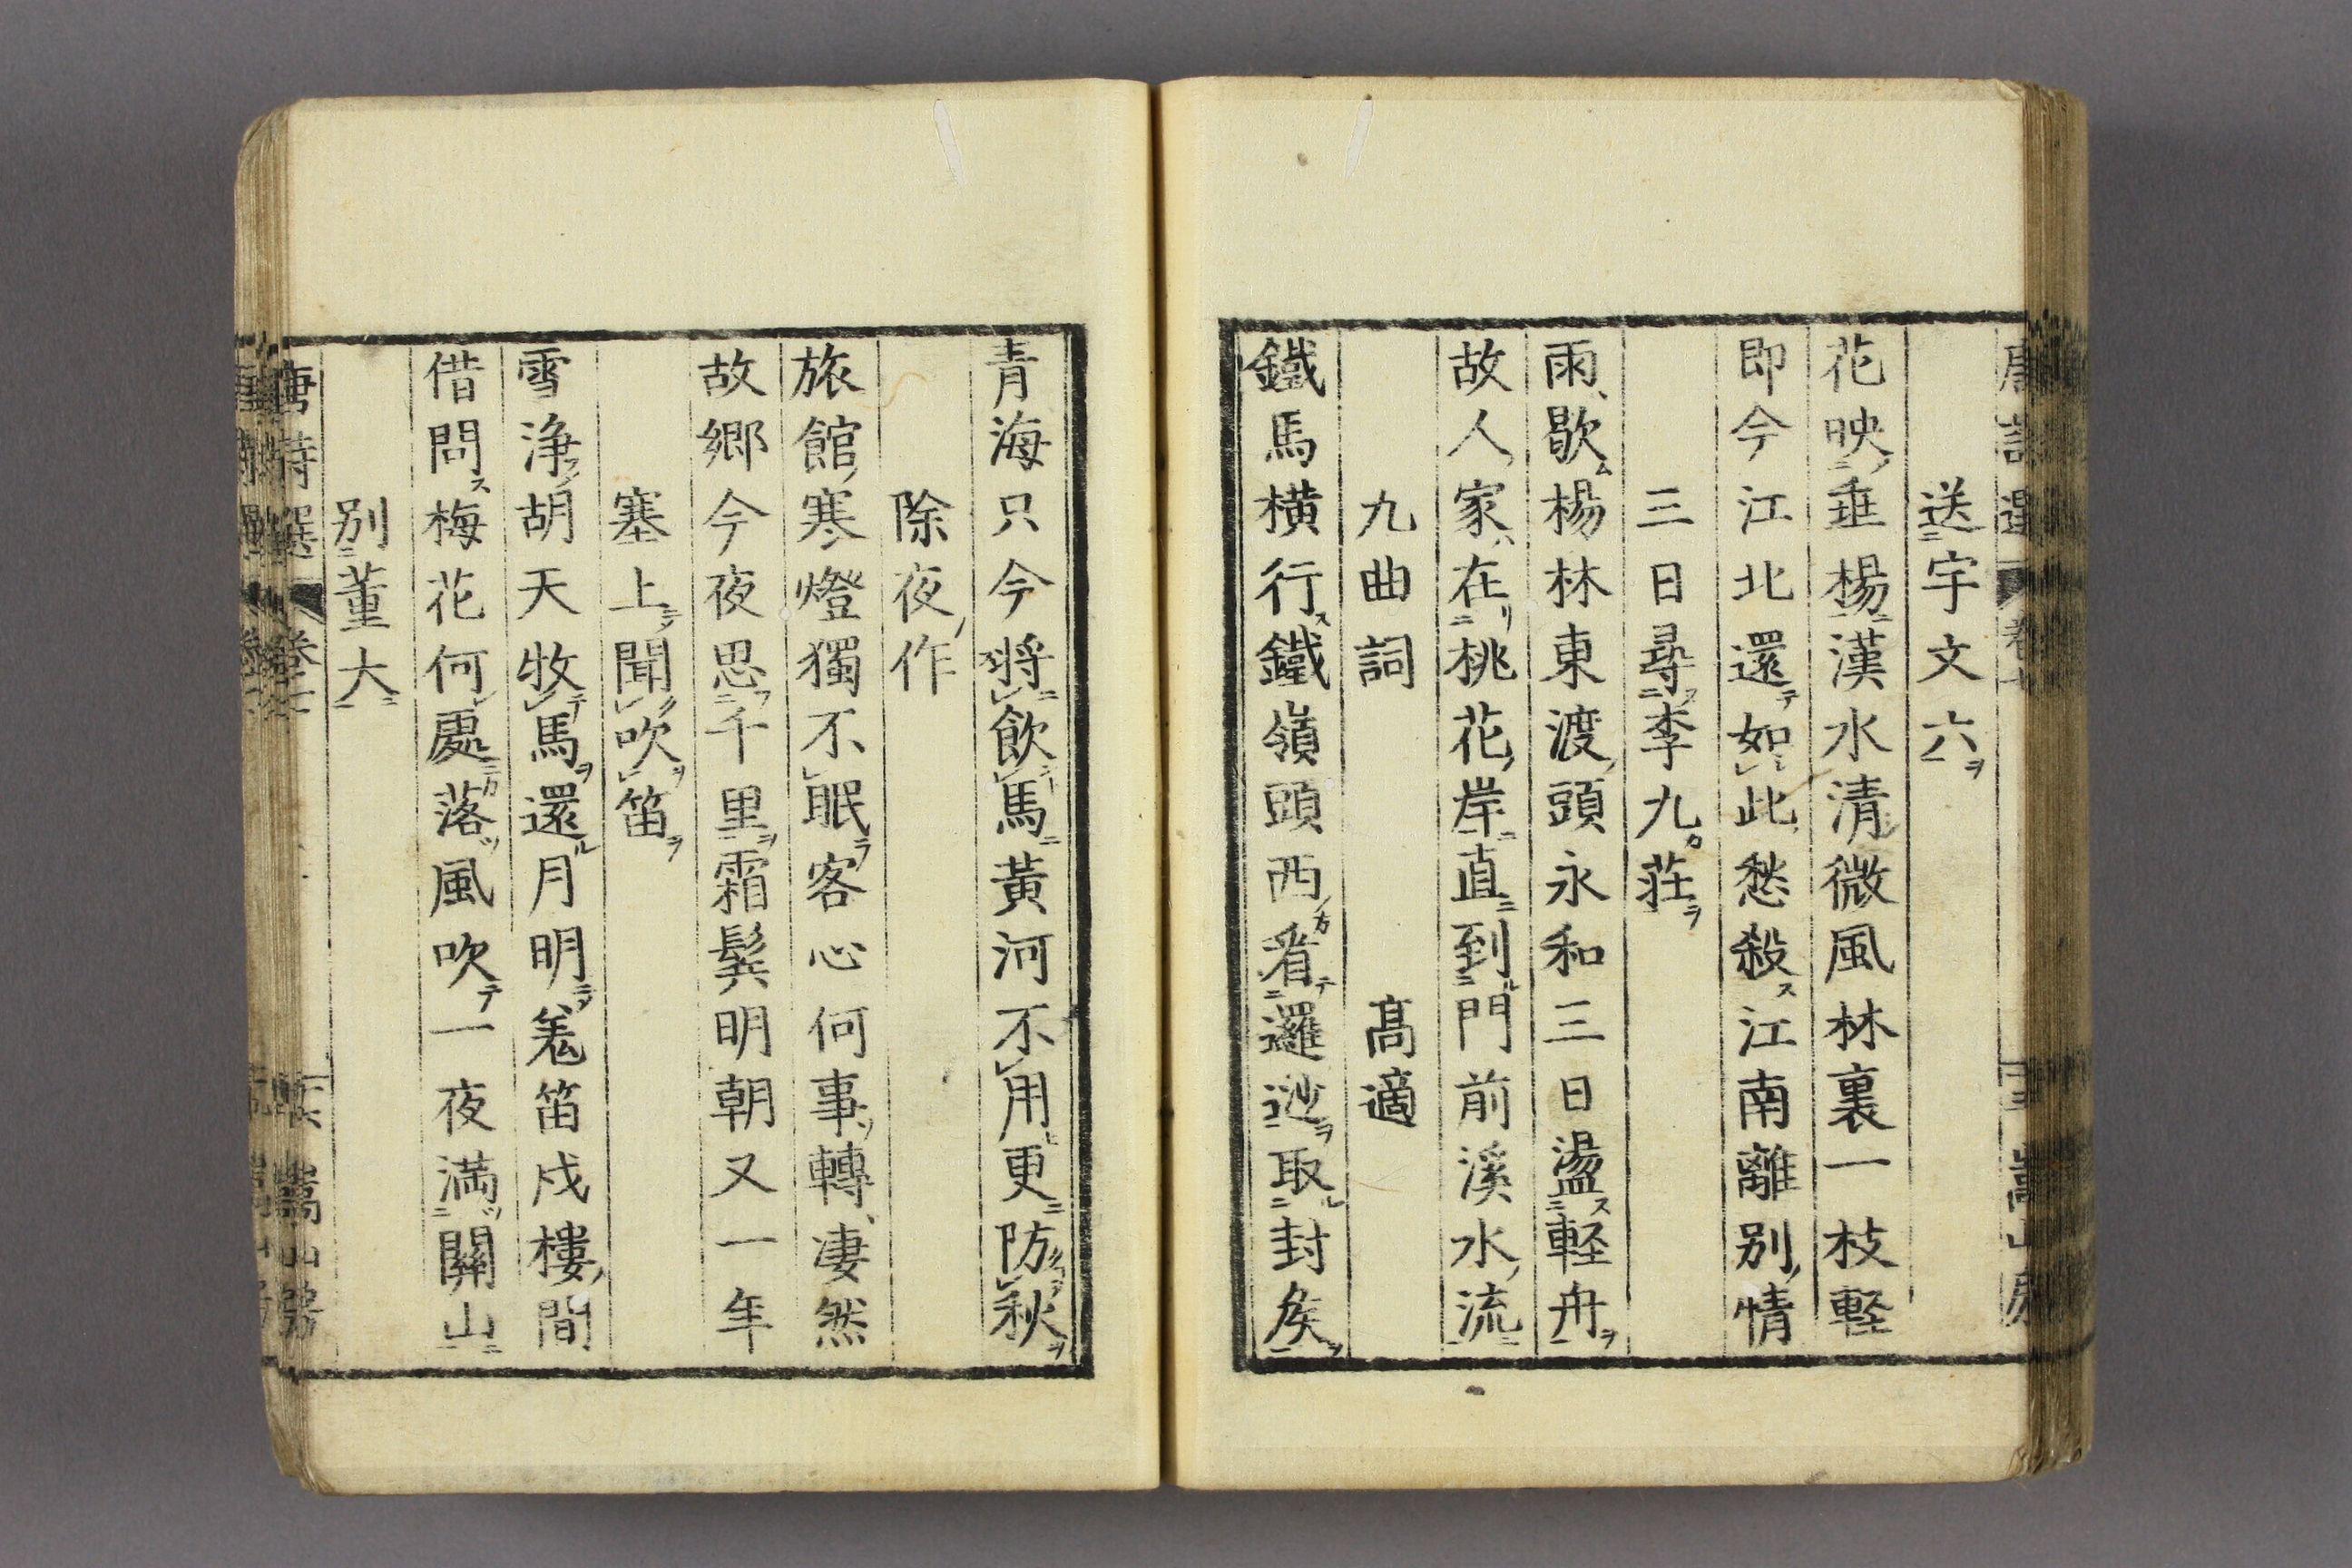 送宇文六
花映垂楊漢水清微風林裏一枝軽
即今江北還如此愁殺江南離別情
三日尋李九荘
雨歇楊林東渡頭永和三日盪軽舟
故人家在桃花岸直到門前溪水流
九曲詞 髙適
鐵馬横行鐵嶺頭西看邏逤取封矦
青海只今將飲馬黃河不用更防秋
除夜作
旅館寒燈獨不眠客心何事轉凄然
故郷今夜思千里霜鬂明朝又一年
塞上聞吹笛
雪浄胡天牧馬還月明羗笛戍樓間
借問梅花何處落風吹一夜満關山
別董大
唐詩選 嵩山房